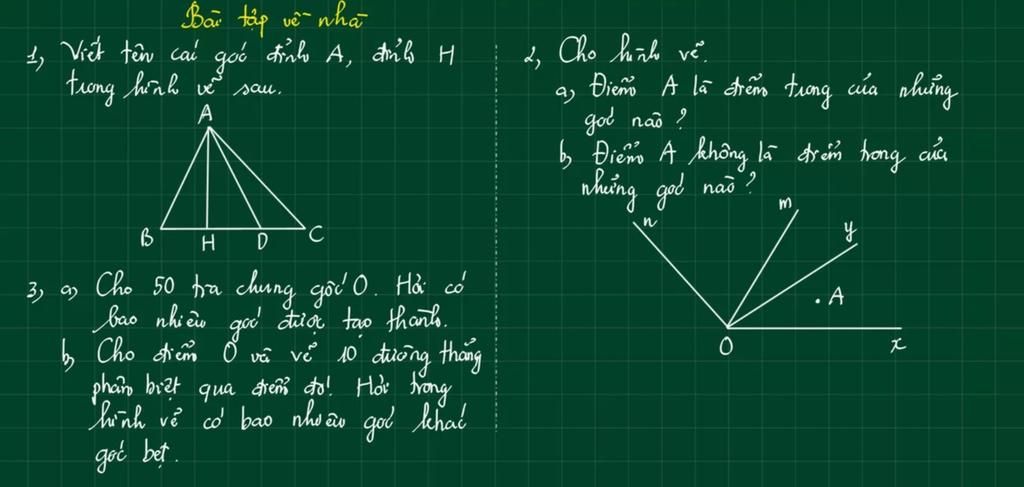 Bài tập về nhà
1, Viết tên các góc đỉnh A, đỉnh H
trong hình vẽ sau.
A
B H D C
3, a, Cho 50 tia chung gốc O. Hỏi có
bao nhiêu góc được tạo thành.
b, Cho điểm O và vẽ 10 đường thẳng
phân biệt qua điểm đó! Hỏi trong
hình vẽ có bao nhiêu góc khác
góc bẹt.
2, Cho hình vẽ.
a, Điểm A là điểm trong của những
góc nào?
b, Điểm A không là điểm trong của
những góc nào?
n
m
y
A
O
x